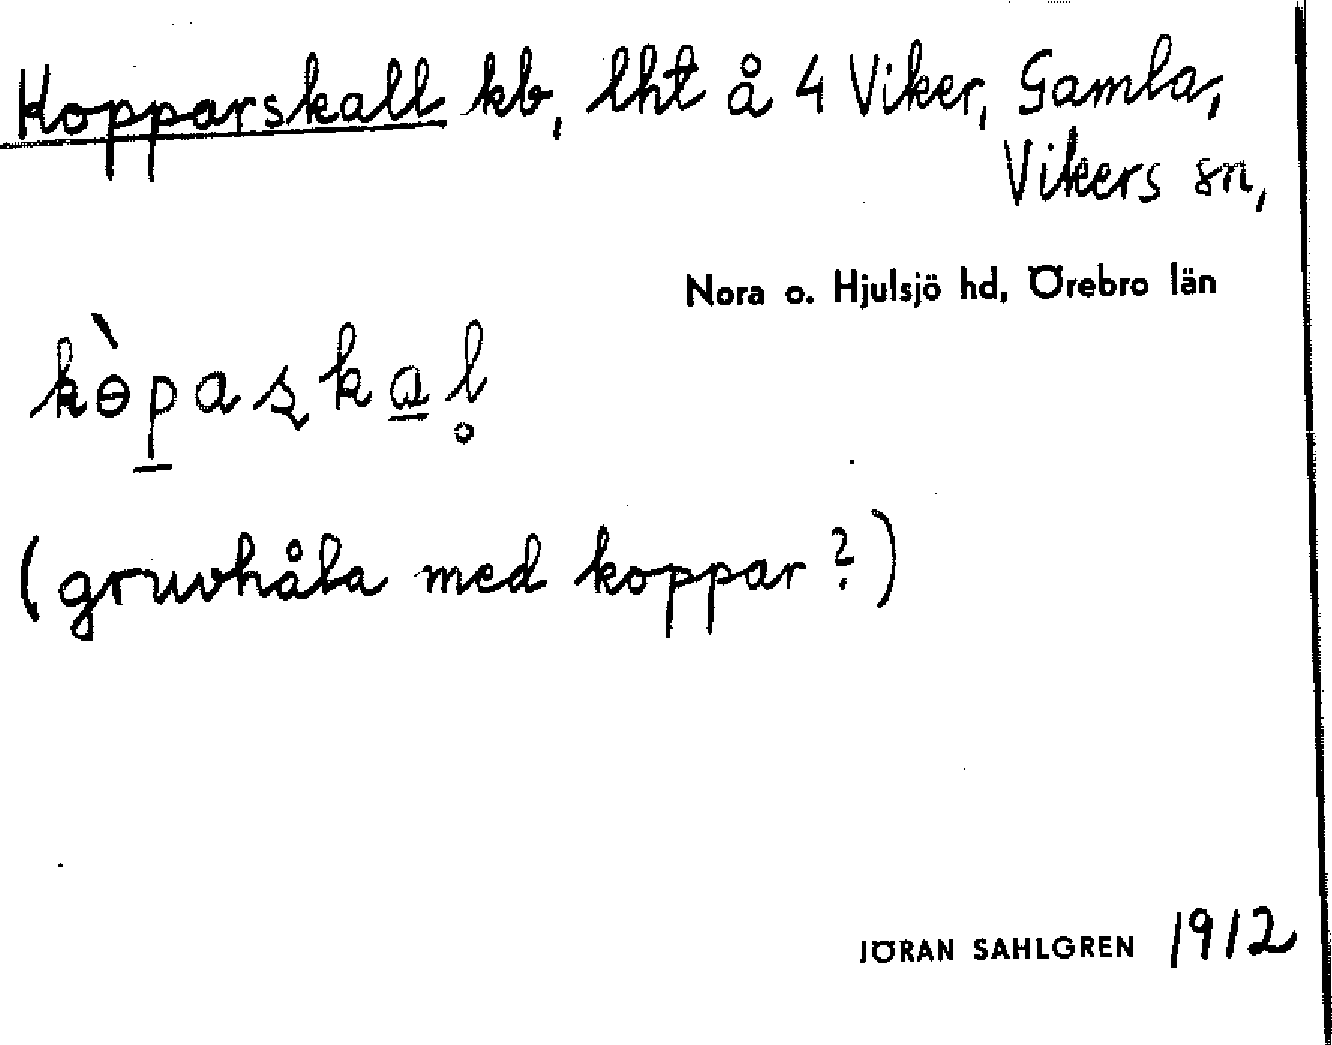 Kopparskall kb, lht å 4 Viker, Gamla,
Vikers sn,
Nora o. Hjulsjö hd, Örebro län
kɵ̀p̱aʂka̱l̥
(gruvhåla med koppar?)
JÖRAN SAHLGREN 1912